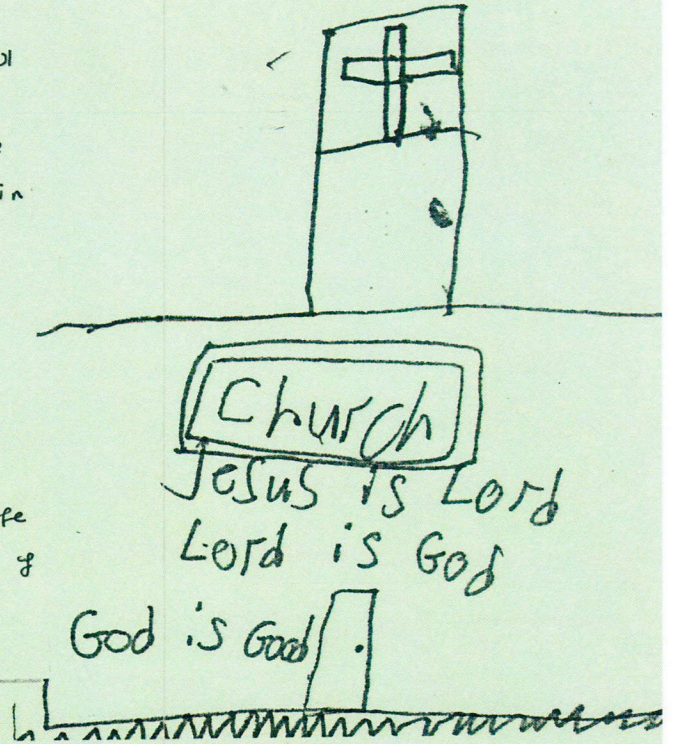 in
Church
Jesus is Lord
Lord is God
God is Good